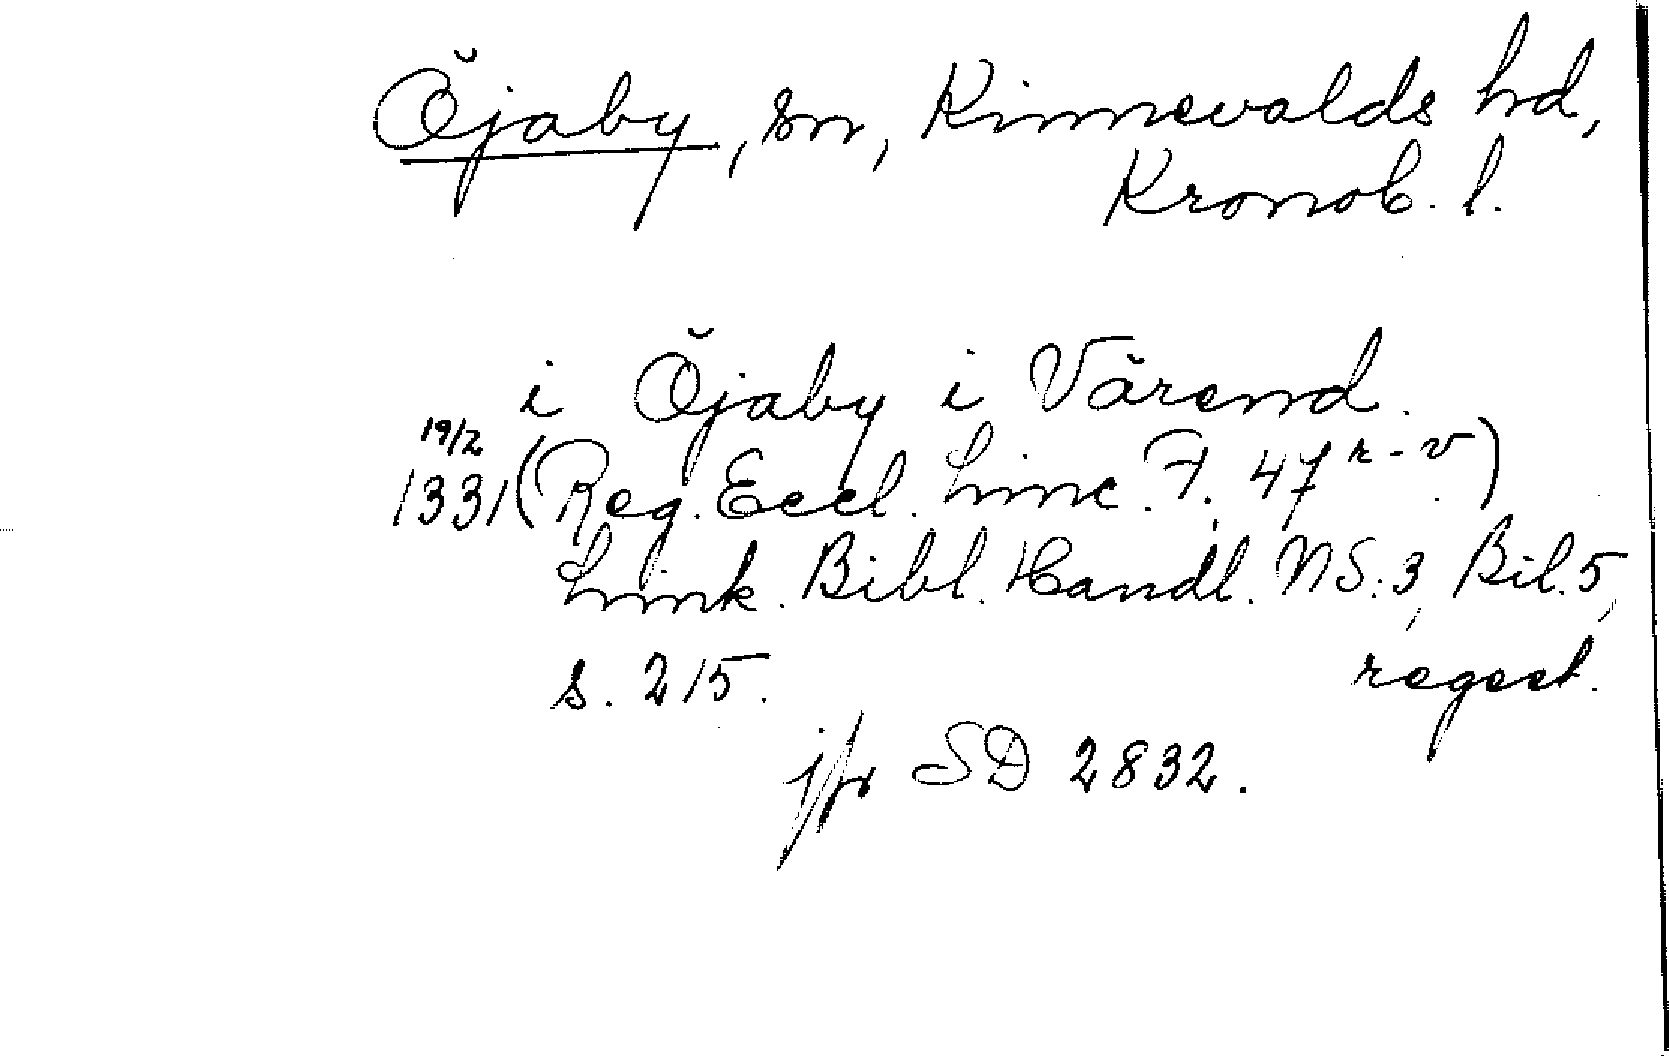 Öjaby, sn, Kinnevalds hd,
Kronob. l.
i Öjaby i Värend.
19/2
1331 (Reg. Eccl. Linc. F. 47 r-v)
Link. Bibl. Handl. NS: 3, Bil. 5,
s. 215. regest.
jfr SD 2832.